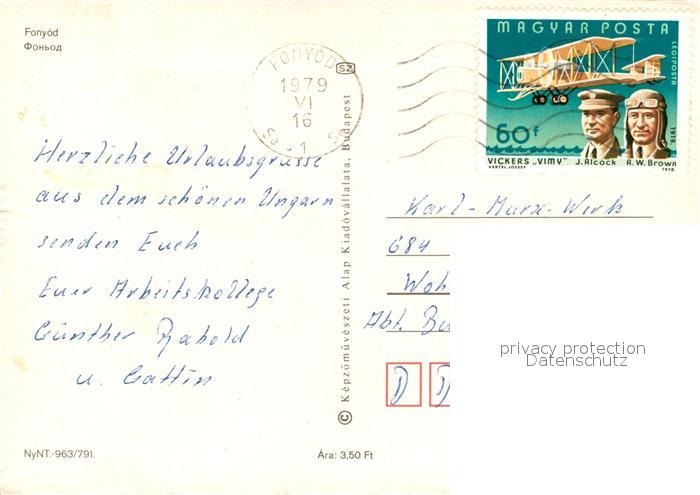 Fonyód
Фоньод
FONYÓD
1979
VI
16
1
SZ
MAGYAR POSTA
LÉGIPOSTA
1919
60f
VICKERS „VIMY” J. Alcock A. W. Brown
VERTEL JÓZSEF 1978
Herzliche Urlaubsgrüsse
aus dem schönen Ungarn
senden Euch
Euer Arbeitskollege
Günther Rabold
u. Gattin
© Képzőművészeti Alap Kiadóvállalata, Budapest
Karl-Marx-Werk
684
Woh
Abt.
D D
privacy protection
Datenschutz
NyNT.-963/791.
Ára: 3,50 Ft